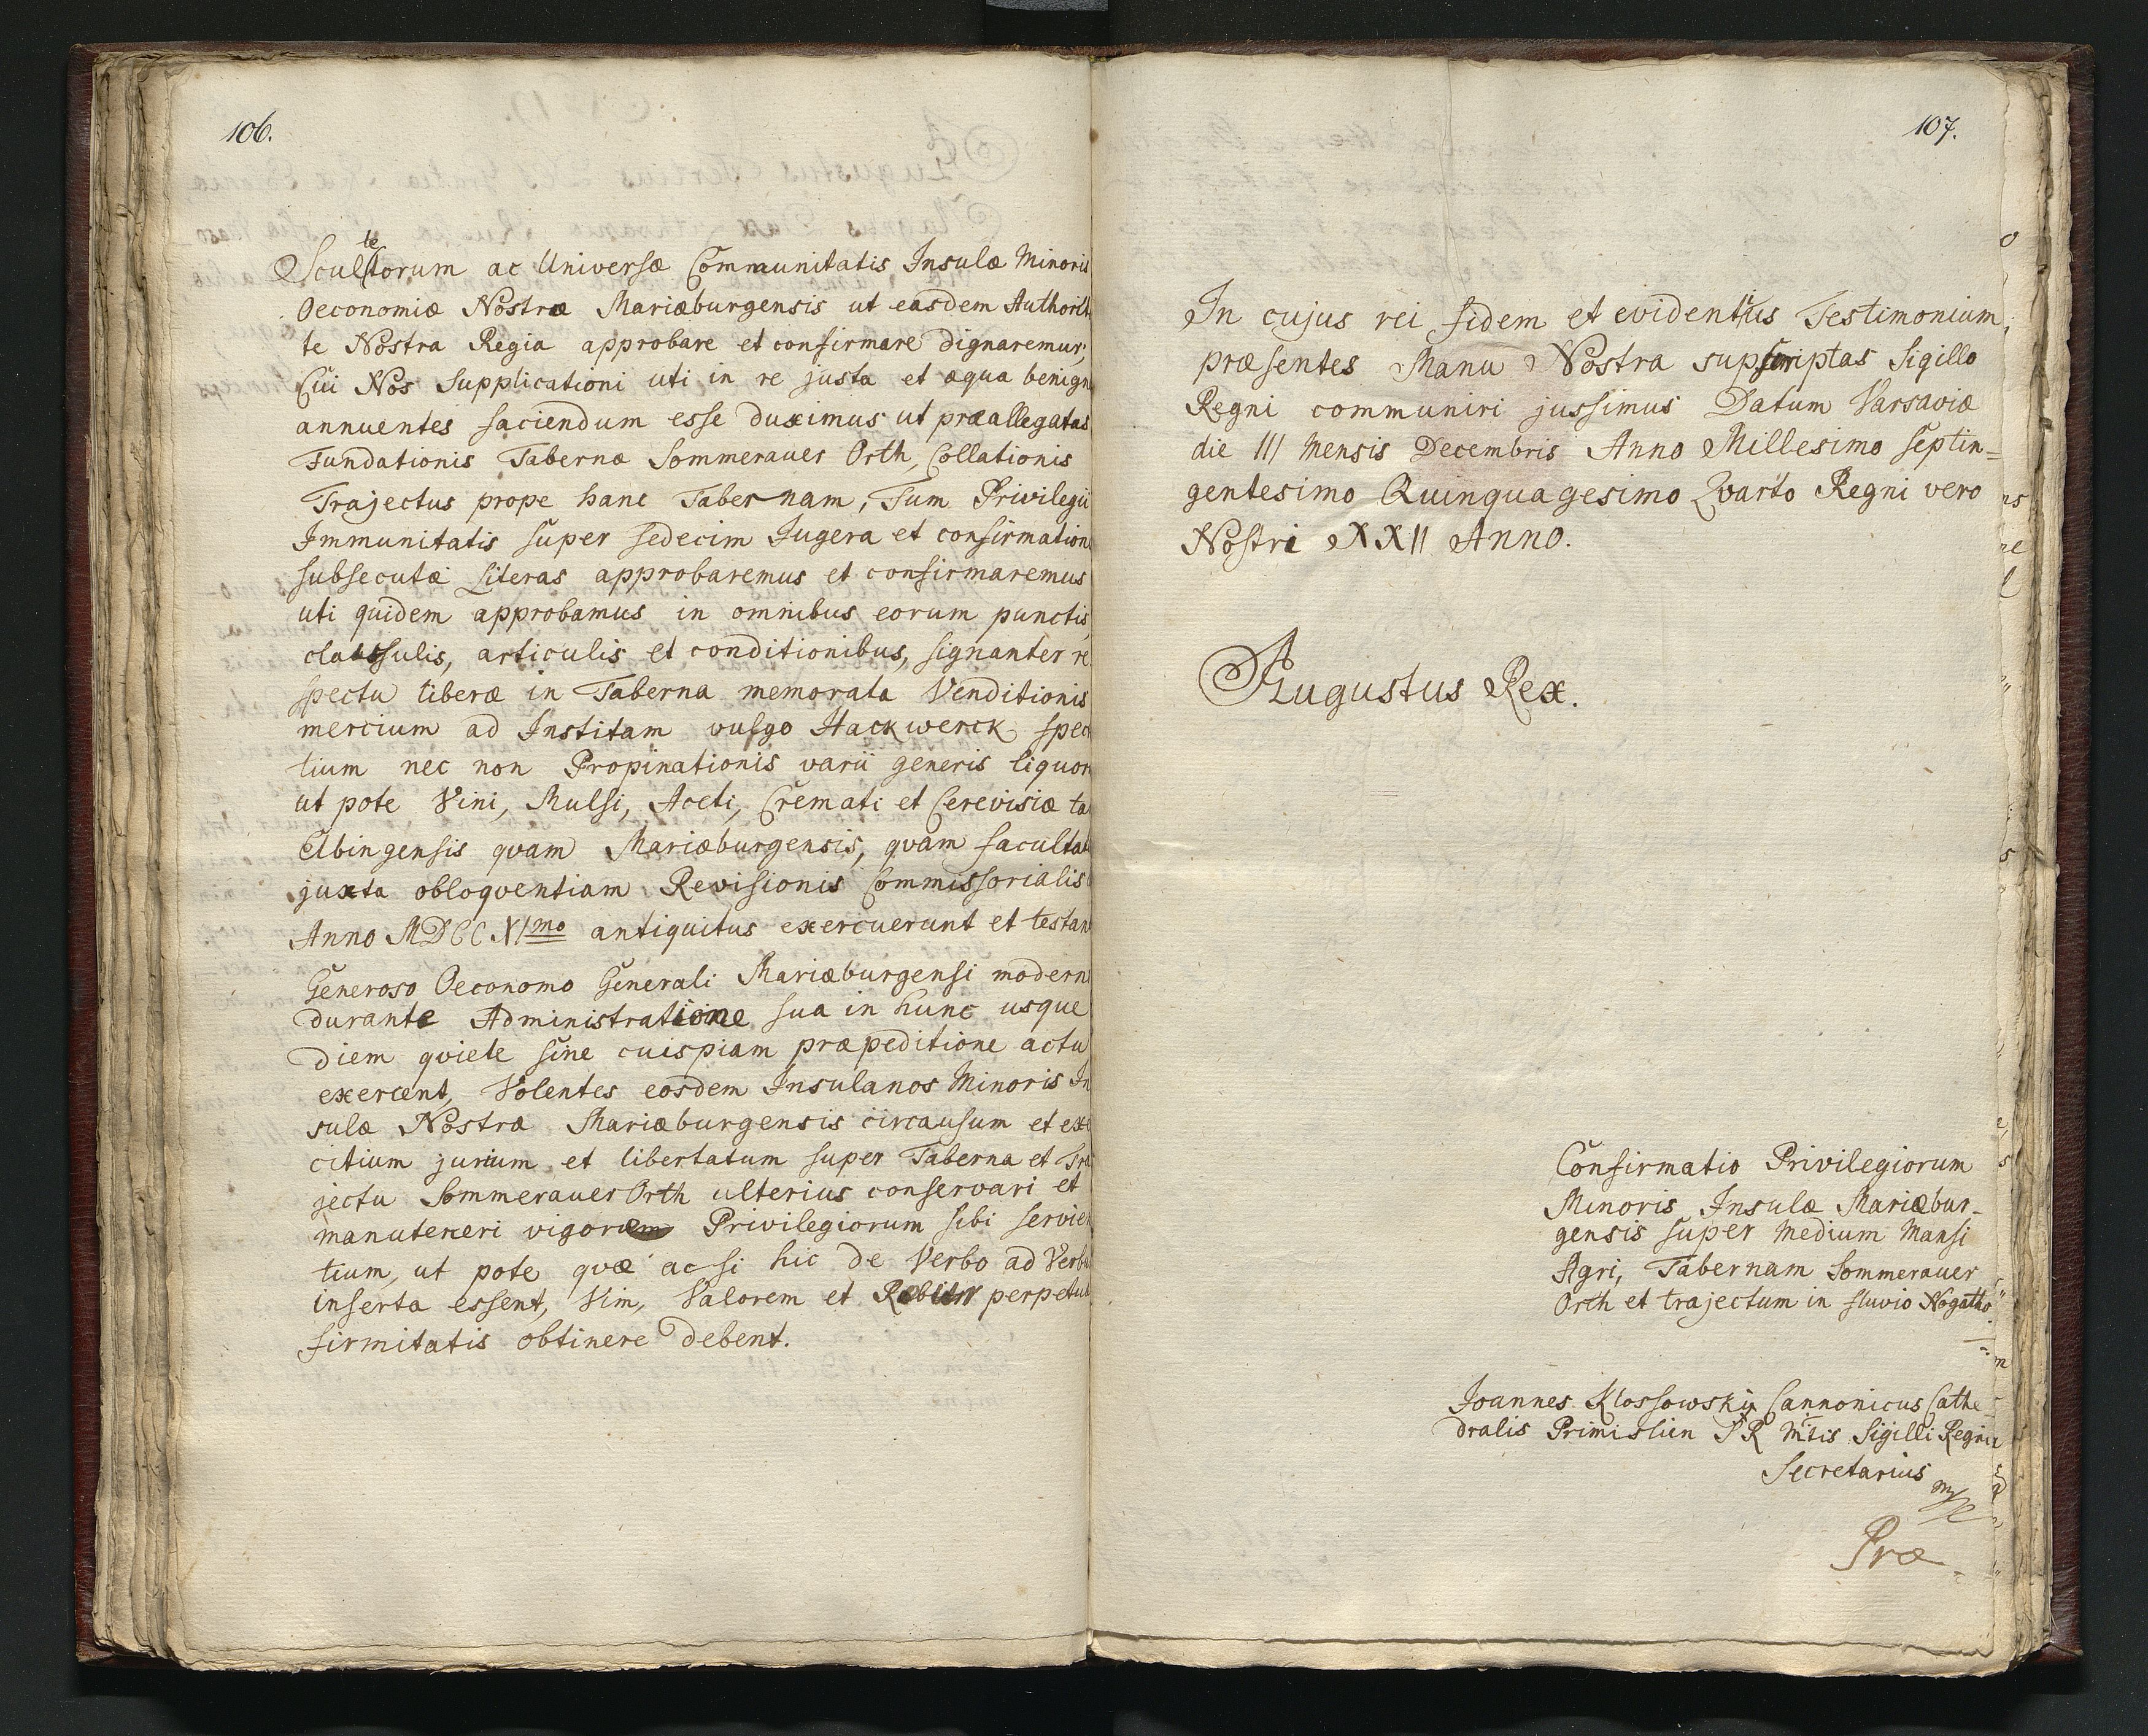 106.
Scultetorum ac Universæ Communitatis Insulæ Minoris
Oeconomiæ Nostræ Mariæburgensis ut easdem Authorita
te Nostra Regia approbare et confirmare dignaremur,
Cui Nos Supplicationi uti in re justa et æqua benigne
annuentes faciendum esse duximus ut præallegatas
Fundationis Tabernæ Sommerauer Orth, Collationis
Trajectus prope hanc Tabernam, Tum Privilegii
Immunitatis super sedecim Jugera et confirmation
subsecutæ Literas approbaremus et confirmaremus
uti quidem approbamus in omnibus eorum punctis,
claussulis, articulis et conditionibus, signanter re
spectu liberæ in Taberna memorata Venditionis
mercium ad Institam vulgo Hackwerck spec
tium nec non Propinationis varii generis liquor
ut pote Vini, Mulsi, Aceti, Cremati et Cerevisiæ ta
Elbingensis qvam Mariæburgensis, qvam facultat
juxta obloqventiam Revisionis Commissorialis
Anno MDCCXImo antiquitus exercuerunt et testan
Generoso Oeconomo Generali Mariæburgensi modern
durante Administratione sua in hunc usque
diem qviete sine cuispiam præpeditione actu
exercent, Volentes eosdem Insulanos Minoris In
sulæ Nostræ Mariæburgensis circa usum et exe
citium jurium et libertatum super Taberna et Tra
jectu Sommerauer Orth ulterius conservari et
manuteneri vigorem Privilegiorum sibi servien
tium, ut pote qvæ ac si hic de Verbo ad Verbu
inserta essent, Vim, Valorem et Robur perpetuæ
firmitatis obtinere debent.
107.
In cujus rei fidem et evidentius Testimonium,
præsentes Manu Nostra supscriptas Sigillo
Regni communiri jussimus Datum Varsaviæ
die III Mensis Decembris Anno Millesimo septin=
gentesimo Quinquagesimo Qvarto Regni vero
Nostri XXII Anno.
Augustus Rex.
Confirmatio Privilegiorum
Minoris Insulæ Mariæbur-
gensis super Medium Mansi
Agri, Tabernam Sommerauer
Orth et trajectum in fluvio Nogatho
Joannes Klossowskij Cannonicus Cathe
dralis Primislien S R Mtis Sigilli Regni
Secretarius
Præ